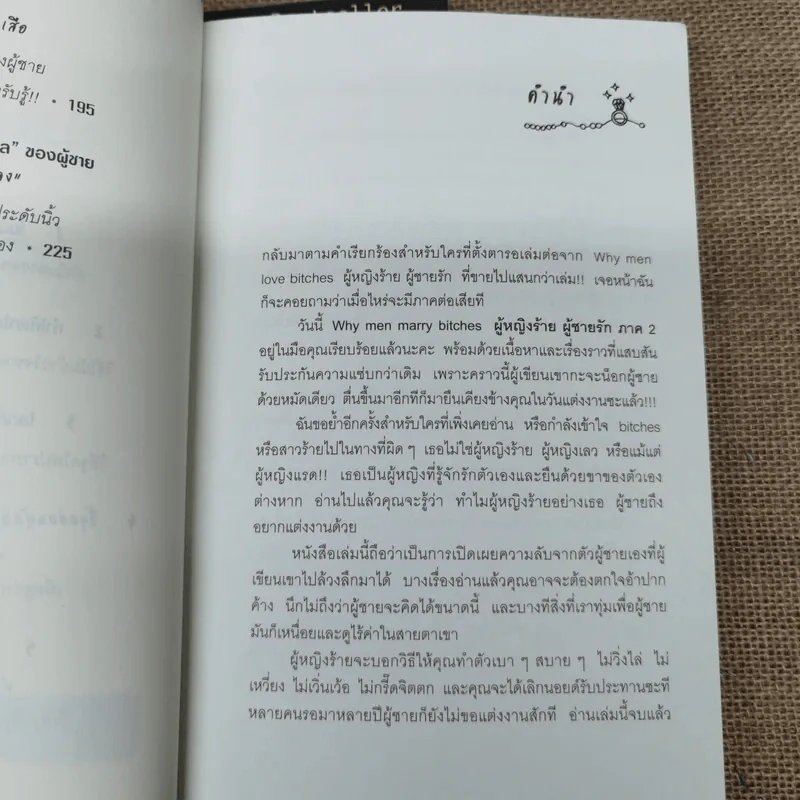 เสือ
งผู้ชาย
รับรู้!! • 195
ล" ของผู้ชาย
ง"
ประดับนิ้ว
อง • 225
คำนำ
กลับมาตามคำเรียกร้องสำหรับใครที่ตั้งตารอเล่มต่อจาก Why men
love bitches ผู้หญิงร้าย ผู้ชายรัก ที่ขายไปแสนกว่าเล่ม!! เจอหน้าฉัน
ก็จะคอยถามว่าเมื่อไหร่จะมีภาคต่อเสียที
วันนี้ Why men marry bitches ผู้หญิงร้าย ผู้ชายรัก ภาค 2
อยู่ในมือคุณเรียบร้อยแล้วนะคะ พร้อมด้วยเนื้อหาและเรื่องราวที่แสบสัน
รับประกันความแซ่บกว่าเดิม เพราะคราวนี้ผู้เขียนเขากะจะน็อกผู้ชาย
ด้วยหมัดเดียว ตื่นขึ้นมาอีกทีก็มายืนเคียงข้างคุณในวันแต่งงานซะแล้ว!!!
ฉันขอย้ำอีกครั้งสำหรับใครที่เพิ่งเคยอ่าน หรือกำลังเข้าใจ bitches
หรือสาวร้ายไปในทางที่ผิด ๆ เธอไม่ใช่ผู้หญิงร้าย ผู้หญิงเลว หรือแม้แต่
ผู้หญิงแรด!! เธอเป็นผู้หญิงที่รู้จักรักตัวเองและยืนด้วยขาของตัวเอง
ต่างหาก อ่านไปแล้วคุณจะรู้ว่า ทำไมผู้หญิงร้ายอย่างเธอ ผู้ชายถึง
อยากแต่งงานด้วย
หนังสือเล่มนี้ถือว่าเป็นการเปิดเผยความลับจากตัวผู้ชายเองที่ผู้
เขียนเขาไปล้วงลึกมาได้ บางเรื่องอ่านแล้วคุณอาจจะต้องตกใจอ้าปาก
ค้าง นึกไม่ถึงว่าผู้ชายจะคิดได้ขนาดนี้ และบางทีสิ่งที่เราทุ่มเพื่อผู้ชาย
มันก็เหนื่อยและดูไร้ค่าในสายตาเขา
ผู้หญิงร้ายจะบอกวิธีให้คุณทำตัวเบา ๆ สบาย ๆ ไม่วิ่งไล่ ไม่
เหวี่ยง ไม่เวิ่นเว้อ ไม่กรี๊ดจิตตก และคุณจะได้เลิกนอยด์รับประทานซะที
หลายคนรอมาหลายปีผู้ชายก็ยังไม่ขอแต่งงานสักที อ่านเล่มนี้จบแล้ว